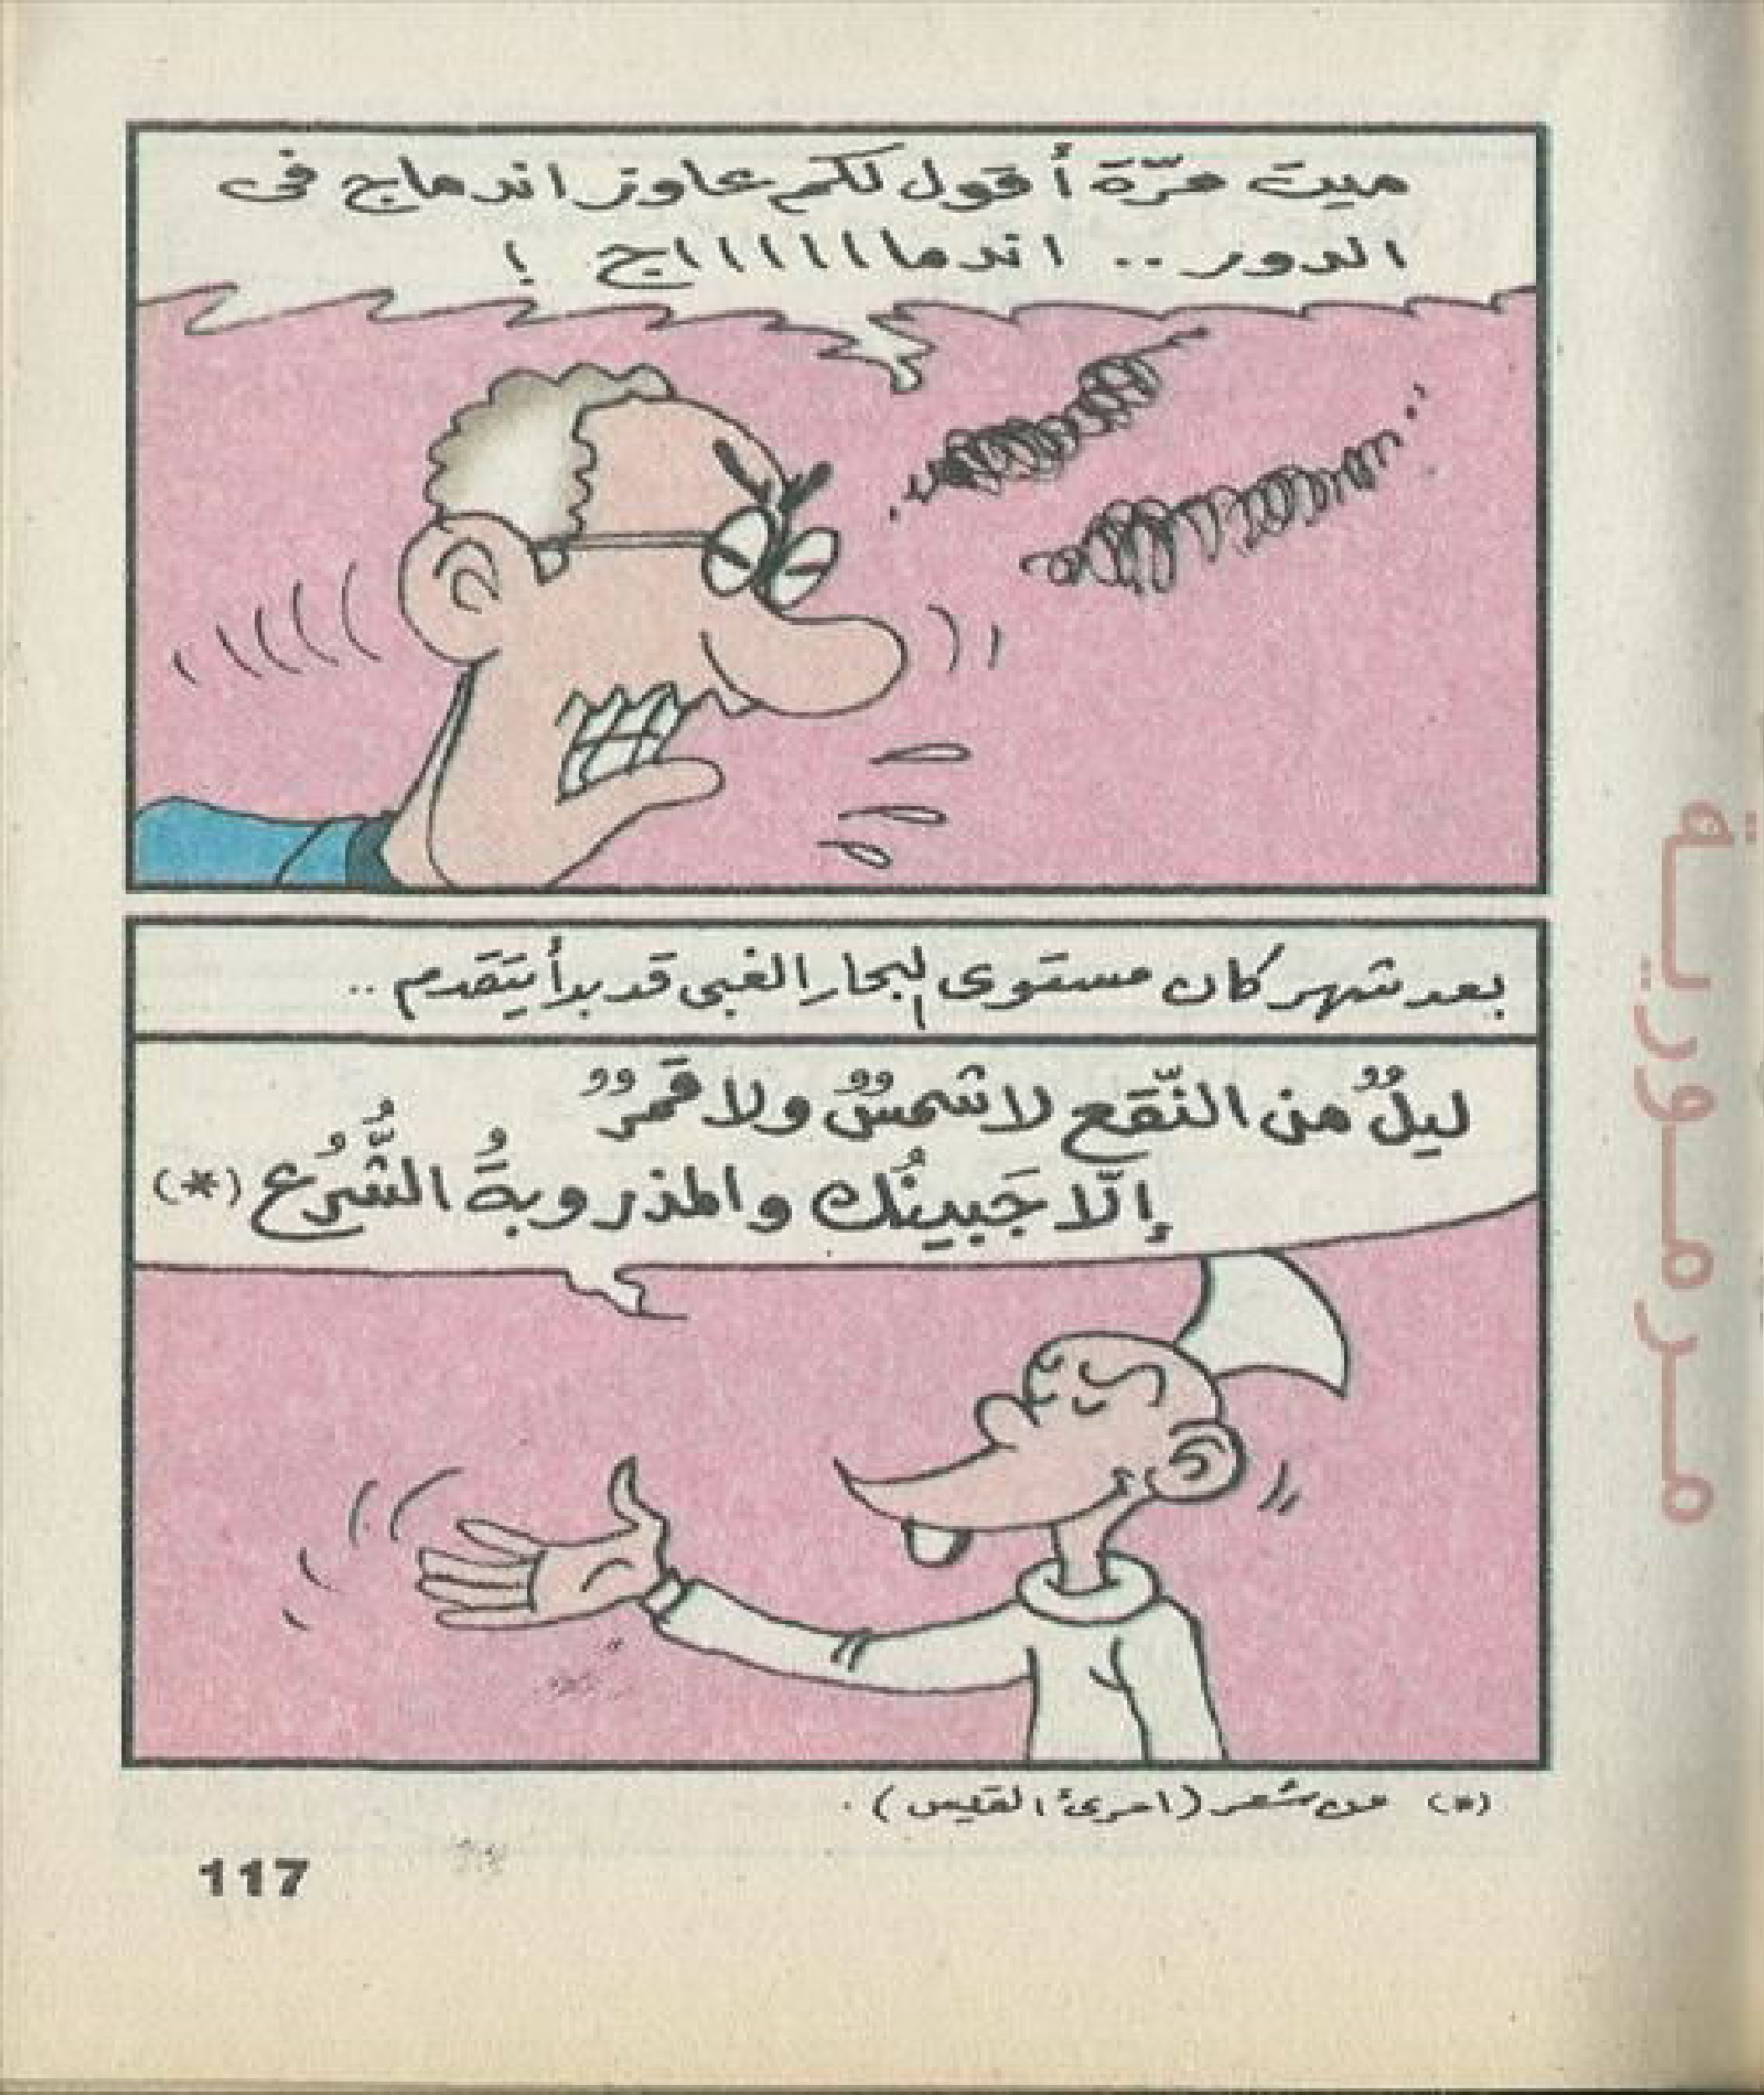 ميت مرّة أقول لكم عاوز اندماج فى
الدور .. اندما اا ا ا ا اج !
بعد شهر كان مستوى البحار الغبى قد بدأ يتقدم ..
ليلٌ من النّقع لا شمسٌ ولا قمرٌ
إلّا جَبينُك والمذروبةُ الشُّرُع (*)
(*) من شعر (امرئ القيس) .
117
مرمورية